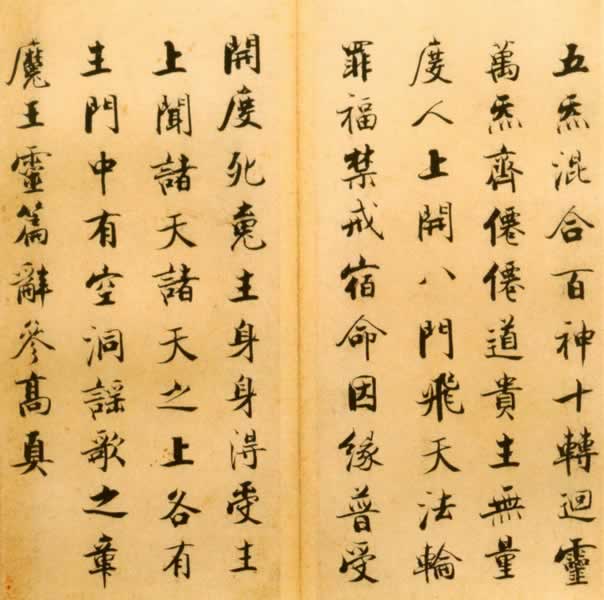 五炁混合百神十轉迴靈
萬炁齊僊僊道貴生無量
度人上開八門飛天法輪
罪福禁戒宿命因緣普受
開度死魂生身身得受生
上聞諸天諸天之上各有
生門中有空洞謠歌之章
魔王靈篇辭參高真